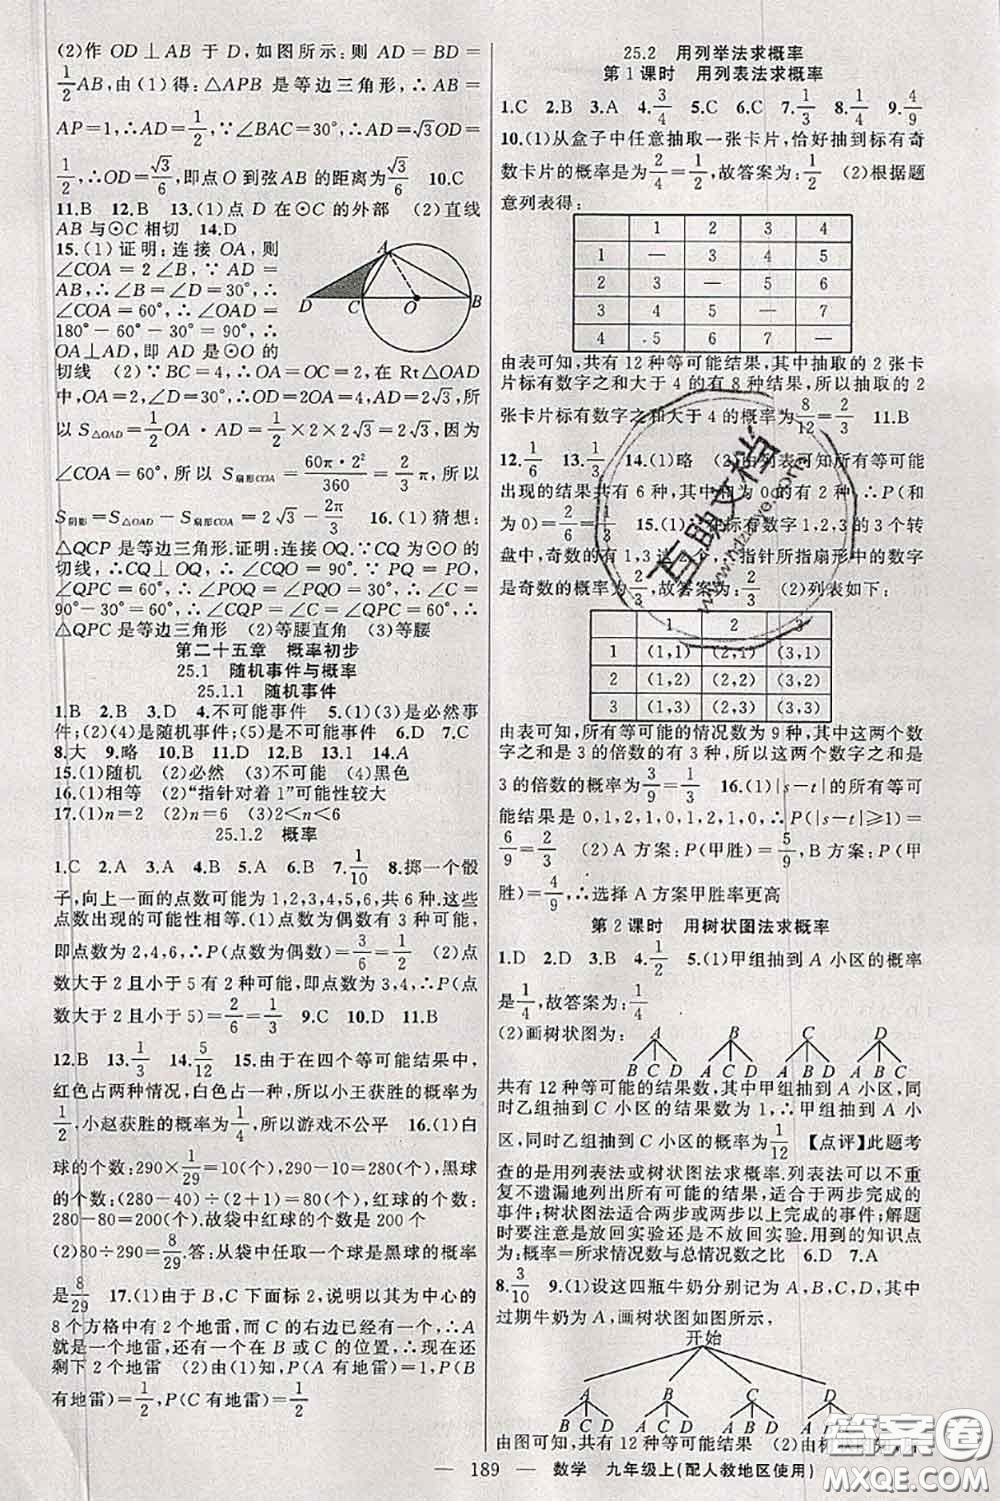 (2)作 OD⊥AB 于 D,如图所示:则 AD=BD=
1/2AB,由(1)得:△APB是等边三角形,∴AB=
AP=1,∴AD=1/2,∵∠BAC=30°,∴AD=√3OD=
1/2,∴OD=√3/6,即点O到弦AB的距离为√3/6 10.C
11.B 12.B 13.(1)点D在⊙C的外部 (2)直线
AB与⊙C相切 14.D
15.(1)证明:连接OA,则
∠COA=2∠B,∵AD=
AB,∴∠B=∠D=30°,∴
∠COA=60°,∴∠OAD=
180°-60°-30°=90°,∴
OA⊥AD,即AD是⊙O的
切线 (2)∵BC=4,∴OA=OC=2,在Rt△OAD
中,OA=2,∠D=30°,∴OD=2OA=4,AD=2√3,所
以S△OAD=1/2OA·AD=1/2×2×2√3=2√3,因为
∠COA=60°,所以S扇形COA=60π·2²/360=2/3π,所以
S阴影=S△OAD-S扇形COA=2√3-2π/3 16.(1)猜想:
△QCP是等边三角形.证明:连接OQ.∵CQ为⊙O的
切线,∴∠CQO=90°.∵PQ=PO,∴∠PQO=
∠POQ.∵∠PQO+∠CQP=90°,∠QPC=∠C=
90°-30°=60°,∴∠CQP=∠C=∠QPC=60°,∴
△QPC是等边三角形 (2)等腰直角 (3)等腰
第二十五章 概率初步
25.1 随机事件与概率
25.1.1 随机事件
1.B 2.B 3.D 4.不可能事件 5.(1)(3)是必然事
件;(2)(4)是随机事件;(5)是不可能事件 6.D 7.C
8.大 9.略 10.B 11.D 12.B 13.1 14.A
15.(1)随机 (2)必然 (3)不可能 (4)黑色
16.(1)相等 (2)“指针对着1”可能性较大
17.(1)n=2 (2)n=6 (3)2<n<6
25.1.2 概率
1.C 2.A 3.A 4.A 5.D 6.B 7.1/10 8.掷一个骰
子,向上一面的点数可能为1,2,3,4,5,6,共6种.这些
点数出现的可能性相等.(1)点数为偶数有3种可能,
即点数为2,4,6,∴P(点数为偶数)=3/6=1/2 (2)点
数大于2且小于5有2种可能,即点数为3,4,∴P(点
数大于2且小于5)=2/6=1/3 9.C 10.D 11.B
12.B 13.1/3 14.5/12 15.由于在四个等可能结果中,
红色占两种情况,白色占一种,所以小王获胜的概率为
1/2,小赵获胜的概率为1/4,所以游戏不公平 16.(1)白
球的个数:290×1/29=10(个),290-10=280(个),黑球
的个数:(280-40)÷(2+1)=80(个),红球的个数:
280-80=200(个).故袋中红球的个数是200个
(2)80÷290=8/29.答:从袋中任取一个球是黑球的概率
是8/29 17.(1)由于B,C下面标2,说明以其为中心的
8个方格中有2个地雷,而C的右边已经有一个,∴A
就是一个地雷,还有一个在B或C的位置,∴现在还
剩下2个地雷 (2)由(1)知,P(A有地雷)=1,P(B
有地雷)=1/2,P(C有地雷)=1/2
25.2 用列举法求概率
第1课时 用列表法求概率
1.C 2.B 3.A 4.3/4 5.C 6.C 7.1/3 8.1/4 9.4/9
10.(1)从盒子中任意抽取一张卡片,恰好抽到标有奇
数卡片的概率是为2/4=1/2,故答案为:1/2 (2)根据题
意列表得:
1 2 3 4
1 — 3 4 5
2 3 — 5 6
3 4 5 — 7
4 5 6 7 —
由表可知,共有12种等可能结果,其中抽取的2张卡
片标有数字之和大于4的有8种结果,所以抽取的2
张卡片标有数字之和大于4的概率为8/12=2/3 11.B
12.1/6 13.1/3 14.(1)略 (2)由列表可知所有等可能
出现的结果共有6种,其中和为0的有2种,∴P(和
为0)=2/6=1/3 15.(1)标有数字1,2,3的3个转
盘中,奇数的有1,3这2个,指针所指扇形中的数字
是奇数的概率为2/3,故答案为:2/3 (2)列表如下:
1 2 3
1 (1,1) (2,1) (3,1)
2 (1,2) (2,2) (3,2)
3 (1,3) (2,3) (3,3)
由表可知,所有等可能的情况数为9种,其中这两个数
字之和是3的倍数的有3种,所以这两个数字之和是
3的倍数的概率为3/9=1/3 16.(1)|s-t|的所有等可
能结果为0,1,2,1,0,1,2,1,0,∴P(|s-t|⩾1)=
6/9=2/3 (2)A方案:P(甲胜)=5/9,B方案:P(甲
胜)=4/9,∴选择A方案甲胜率更高
第2课时 用树状图法求概率
1.D 2.D 3.B 4.1/2 5.(1)甲组抽到A小区的概率
是1/4,故答案为:1/4
(2)画树状图为:
A B C D
B C D A C D A B D A B C
共有12种等可能的结果数,其中甲组抽到A小区,同
时乙组抽到C小区的结果数为1,∴甲组抽到A小
区,同时乙组抽到C小区的概率为1/12 【点评】此题考
查的是用列表法或树状图法求概率.列表法可以不重
复不遗漏地列出所有可能的结果,适合于两步完成的
事件;树状图法适合两步或两步以上完成的事件;解题
时要注意是放回实验还是不放回实验.用到的知识点
为:概率=所求情况数与总情况数之比 6.D 7.A
8.3/10 9.(1)设这四瓶牛奶分别记为A,B,C,D,其中
过期牛奶为A,画树状图如图所示,
开始
A B C D
B C D A C D A B D A B C
由图可知,共有12种等可能结果 (2)由树状
— 189 — 数学 九年级上(配人教地区使用)
D C O B A
互助文档
答案圈